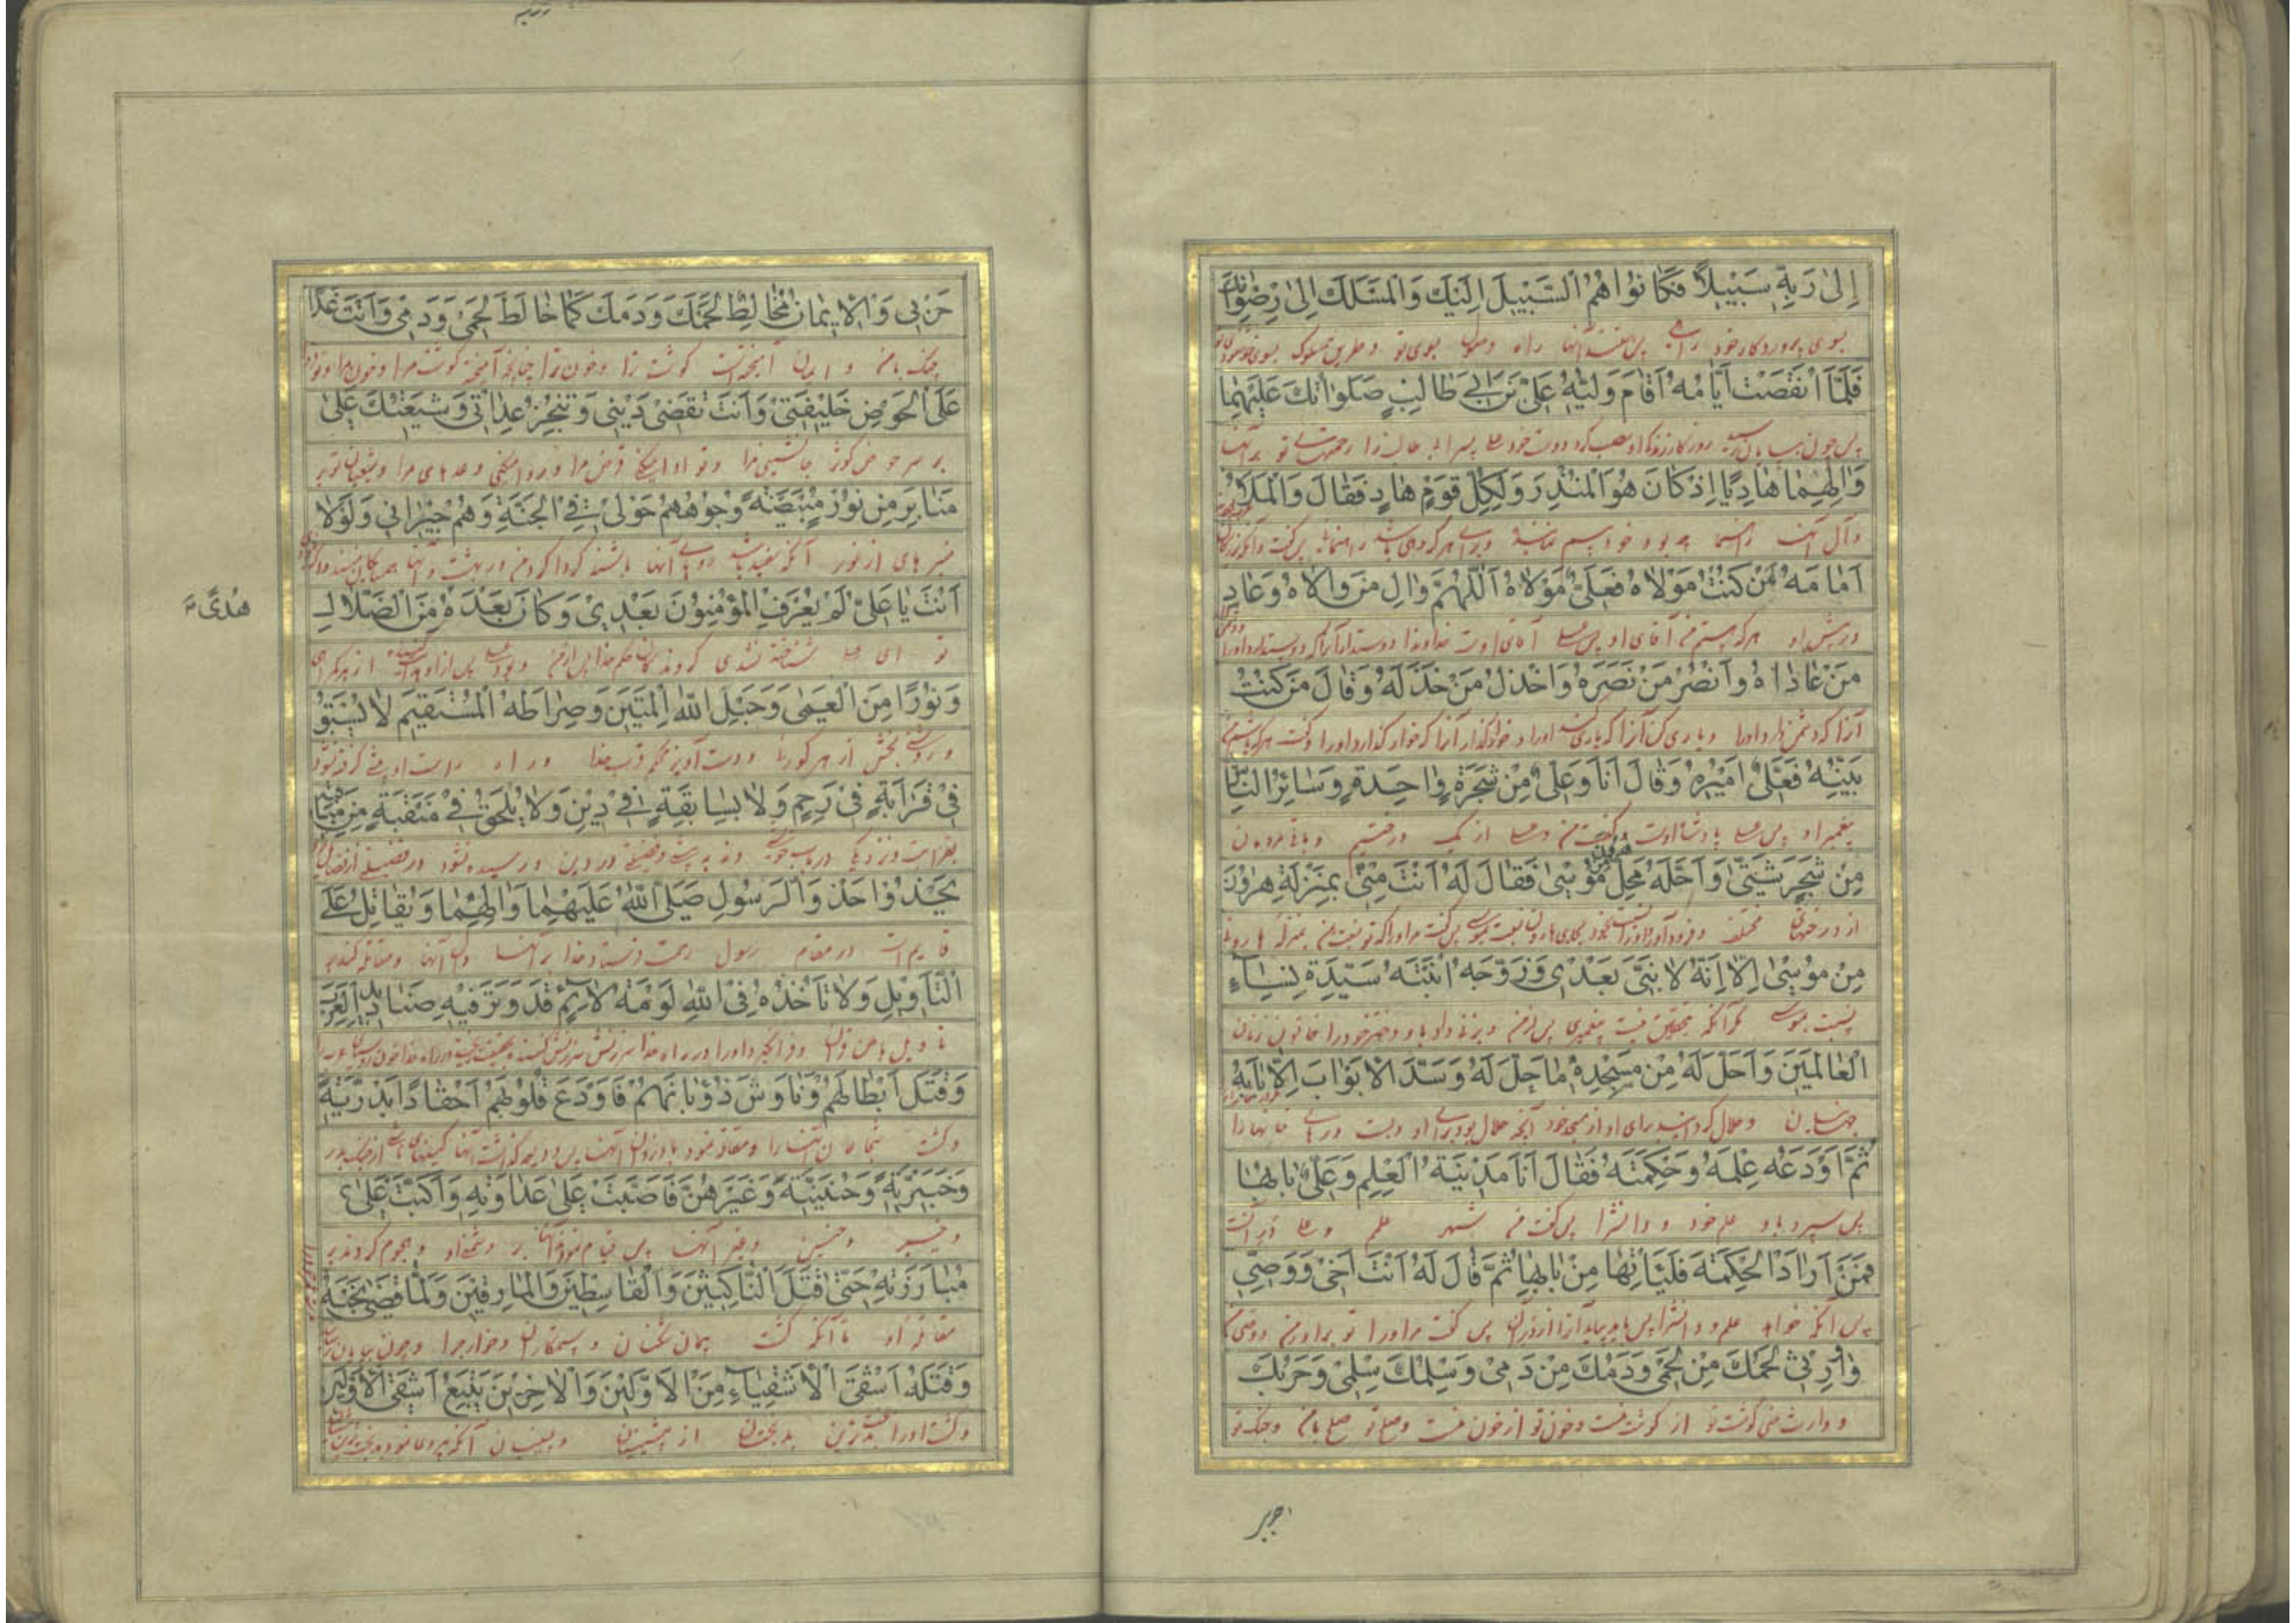 إِلىٰ رَبِّهِ سَبِيلًا فَكَانُوا هُمُ السَّبِيلَ إِلَيْكَ وَالْمَسْلَكَ إِلىٰ رِضْوَانِكَ
بسوی پروردگار خود راهی پس هستند آنها راه وصول بسوی تو و طریق سلوک بسوی خوشنودی تو
فَلَمَّا انْقَضَتْ أَيَّامُهُ أَقَامَ وَلِيَّهُ عَلِيَّ بْنَ أَبِي طَالِبٍ صَلَوَاتُكَ عَلَيْهِمَا
پس چون بپایان رسید روزگار زندگی او نصب کرد دوست خود علی پسر ابی طالب را رحمتهای تو بر آنها
وَآلِهِمَا هَادِيًا إِذْ كَانَ هُوَ الْمُنْذِرَ وَلِكُلِّ قَوْمٍ هَادٍ فَقَالَ وَالْمَلَأُ
و آل آنها راهنما چه بود خود بیم نماینده و برای هر گروهی باشد راهنمائی پس گفت و آنکه بزرگان
أَمَامَهُ مَنْ كُنْتُ مَوْلَاهُ فَعَلِيٌّ مَوْلَاهُ اللّٰهُمَّ وَالِ مَنْ وَالَاهُ وَعَادِ
در پیش او هر که هستم من آقای او پس علی آقای اوست خداوندا دوست دار آنرا که دوست دارد او را
مَنْ عَادَاهُ وَانْصُرْ مَنْ نَصَرَهُ وَاخْذُلْ مَنْ خَذَلَهُ وَقَالَ مَنْ كُنْتُ
آنرا که دشمن دارد او را و یاری کن آنرا که یاری کند او را و خوار گذار آنرا که خوار گذارد او را و گفت هر که باشم من
نَبِيَّهُ فَعَلِيٌّ أَمِيرُهُ وَقَالَ أَنَا وَعَلِيٌّ مِنْ شَجَرَةٍ وَاحِدَةٍ وَسَائِرُ النَّاسِ
پیغمبر او پس علی پادشاه اوست و گفت من و علی از یک درختیم و باقی مردمان
مِنْ شَجَرٍ شَتّىٰ وَأَحَلَّهُ مَحَلَّ هٰرُونَ مِنْ مُوسىٰ فَقَالَ لَهُ أَنْتَ مِنِّي بِمَنْزِلَةِ هٰرُونَ
از درختهای مختلف و فرود آورد او را نسبت بخود بجای هارون نسبت بموسی پس گفت مر او را که تو نسبت بمن بمنزله هارون
مِنْ مُوسىٰ إِلَّا أَنَّهُ لَا نَبِيَّ بَعْدِي وَزَوَّجَهُ ابْنَتَهُ سَيِّدَةَ نِسَاءِ
نسبت بموسی مگر آنکه بتحقیق نیست پیغمبری پس از من و بزنی داد باو دختر خود را خاتون زنان
الْعَالَمِينَ وَأَحَلَّ لَهُ مِنْ مَسْجِدِهِ مَا حَلَّ لَهُ وَسَدَّ الْأَبْوَابَ إِلَّا بَابَهُ
جهانیان و حلال گردانید برای او از مسجد خود آنچه حلال بود برای او و بست درهای خانها را
ثُمَّ أَوْدَعَهُ عِلْمَهُ وَحِكْمَتَهُ فَقَالَ أَنَا مَدِينَةُ الْعِلْمِ وَعَلِيٌّ بَابُهَا
پس سپرد باو علم خود و دانش را پس گفت من شهر علم و علی در آنست
فَمَنْ أَرَادَ الْحِكْمَةَ فَلْيَأْتِهَا مِنْ بَابِهَا ثُمَّ قَالَ لَهُ أَنْتَ أَخِي وَوَصِيِّي
پس آنکه خواهد علم و دانش را پس باید بیاید آنرا از در آن پس گفت مر او را تو برادر من و وصی من
وَوَارِثِي لَحْمُكَ مِنْ لَحْمِي وَدَمُكَ مِنْ دَمِي وَسِلْمُكَ سِلْمِي وَحَرْبُكَ
و وارث منی گوشت تو از گوشت منست و خون تو از خون منست و صلح تو صلح با من و جنگ تو
حربی
حَرْبِي وَالْإِيمَانُ مُخَالِطٌ لَحْمَكَ وَدَمَكَ كَمَا خَالَطَ لَحْمِي وَدَمِي وَأَنْتَ غَدًا
جنگ با من و ایمان آمیخته است گوشت ترا و خون ترا چنانچه آمیخته گوشت مرا و خون مرا و تو فردا
عَلَى الْحَوْضِ خَلِيفَتِي وَأَنْتَ تَقْضِي دَيْنِي وَتُنْجِزُ عِدَاتِي وَشِيعَتُكَ عَلىٰ
بر سر حوض کوثر جانشینی مرا و تو ادا میکنی قرض مرا و روا میکنی وعدهای مرا و شیعیان تو بر
مَنَابِرَ مِنْ نُورٍ مُبْيَضَّةً وُجُوهُهُمْ حَوْلِي فِي الْجَنَّةِ وَهُمْ جِيرَانِي وَلَوْلَا
منبرهای از نور آنکه سفید باشد رویهای آنها باشند گرداگرد من در بهشت و آنها همسایگان منند و اگر
أَنْتَ يَا عَلِيُّ لَمْ يُعْرَفِ الْمُؤْمِنُونَ بَعْدِي وَكَانَ بَعْدَهُ مِنَ الضَّلَالِ
هُدًى
تو ای علی شناخته نشدی گروندگان بحکم خدا پس از من و بود علی پس از او هدایت کننده از گمراهی
وَنُورًا مِنَ الْعَمىٰ وَحَبْلَ اللّٰهِ الْمَتِينَ وَصِرَاطَهُ الْمُسْتَقِيمَ لَا يُسْبَقُ
و روشنی بخش از هر کوری و دست آویز محکم قرب خدا و راه راست او پیشی گرفته نشود
فِي قَرَابَةٍ فِي رَحِمٍ وَلَا بِسَابِقَةٍ فِي دِينٍ وَلَا يُلْحَقُ فِي مَنْقَبَةٍ مِنْ مَنَاقِبِهِ
يَحْذُو حَذْوَ الرَّسُولِ صَلَّى اللّٰهُ عَلَيْهِمَا وَآلِهِمَا وَيُقَاتِلُ عَلَى
قایم است در مقام رسول رحمت فرستاد خدا بر آنها و آل آنها و مقاتله کند بر
التَّأْوِيلِ وَلَا تَأْخُذُهُ فِي اللّٰهِ لَوْمَةُ لَائِمٍ قَدْ وَتَرَ فِيهِ صَنَادِيدَ الْعَرَبِ
وَقَتَلَ أَبْطَالَهُمْ وَنَاوَشَ ذُؤْبَانَهُمْ فَأَوْدَعَ قُلُوبَهُمْ أَحْقَادًا بَدْرِيَّةً
وَخَيْبَرِيَّةً وَحُنَيْنِيَّةً وَغَيْرَهُنَّ فَأَضَبَّتْ عَلىٰ عَدَاوَتِهِ وَأَكَبَّتْ عَلىٰ
و خیبر و حنین و غیر آنها پس قیام نمودند آنها بر دشمنی او و هجوم کردند بر
مُبَارَزَتِهِ حَتّىٰ قَتَلَ النَّاكِثِينَ وَالْقَاسِطِينَ وَالْمَارِقِينَ وَلَمَّا قَضىٰ نَحْبَهُ
مقاتله او تا آنکه کشت پیمان شکنان و ستمکاران و خوارج را و چون بپایان رسانید
وَقَتَلَهُ أَشْقَى الْأَشْقِيَاءِ مِنَ الْأَوَّلِينَ وَالْآخِرِينَ يَتْبَعُ أَشْقَى الْأَوَّلِينَ